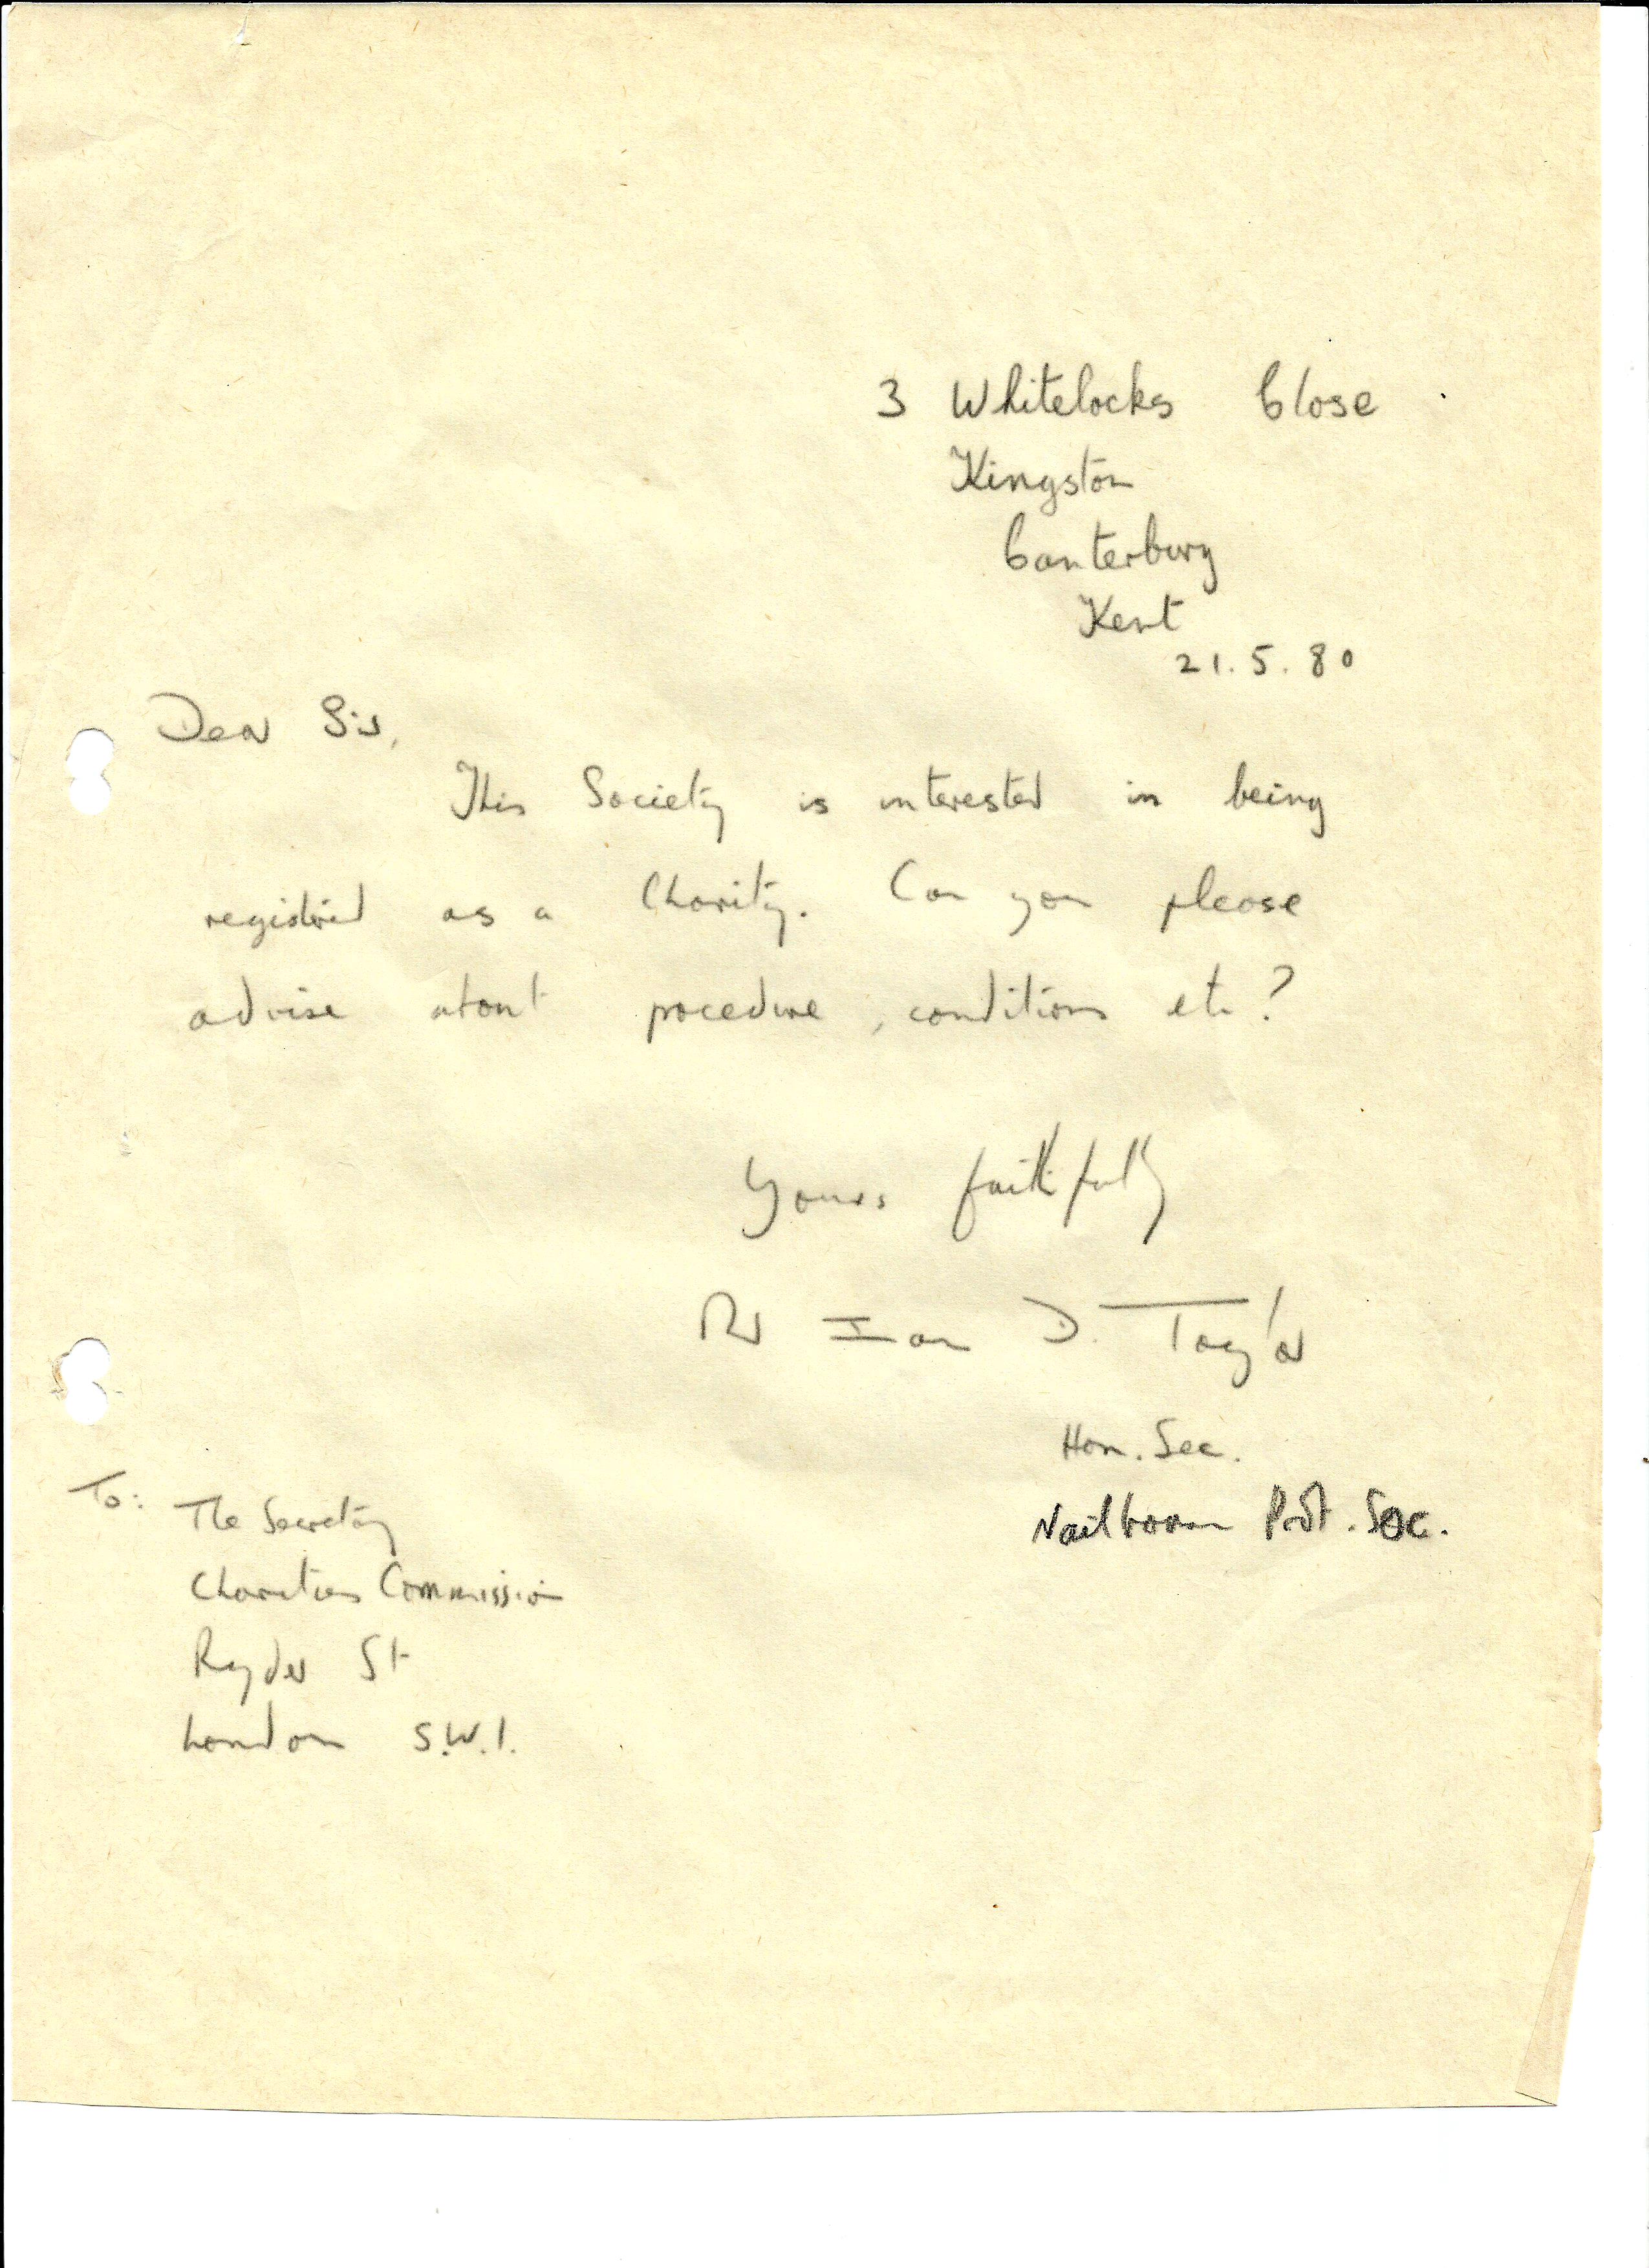 3 Whitelocks Close
Kingston
Canterbury
Kent
21.5.80
Dear Sir,
This Society is interested in being
registered as a Charity. Can you please
advise about procedure, conditions etc?
Yours faithfully
Dr Ian D. Taylor
Hon. Sec.
Nailbourn Prot. Soc.
To: The Secretary
Charities Commission
Ryder St
London S.W.1.